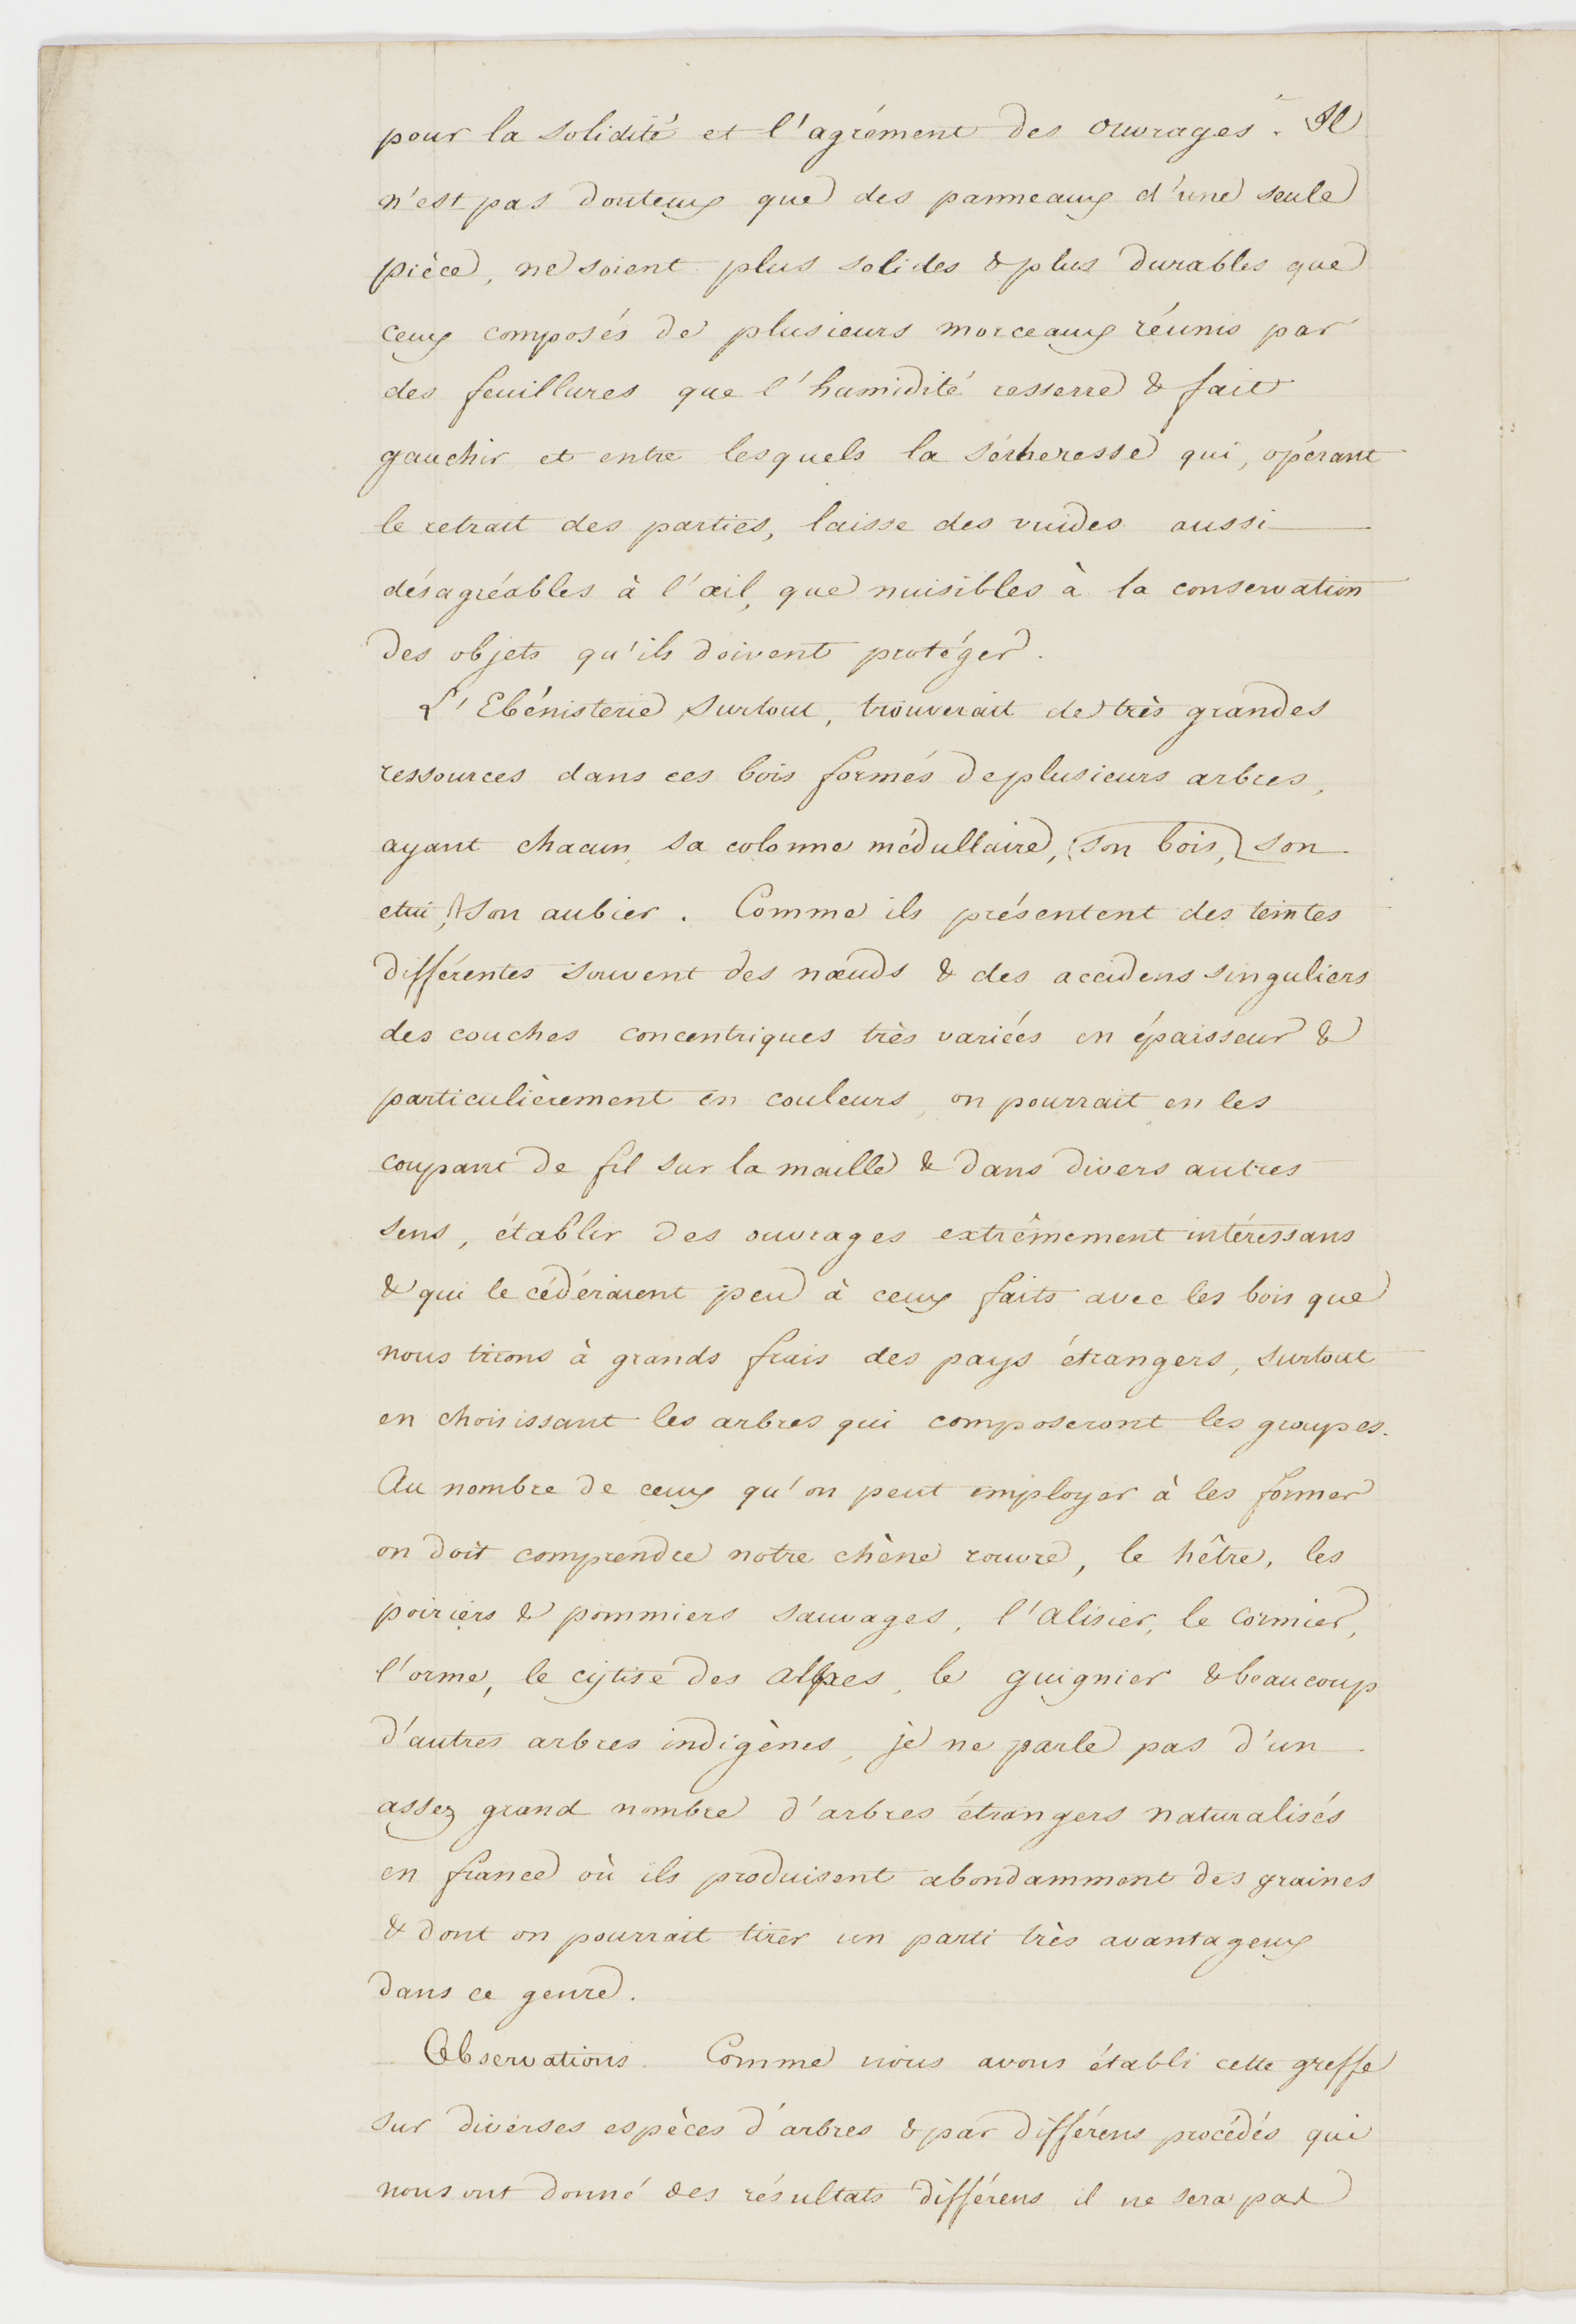 pour la solidité et l'agrément des ouvrages. Il
n'est pas douteux que des panneaux d'une seule
pièce, ne soient plus solides & plus durables que
ceux composés de plusieurs morceaux réunis par
des feuillures que l'humidité resserre & fait
gauchir et entre lesquels la sécheresse qui, opérant
le retrait des parties, laisse des vuides aussi
désagréables à l'œil, que nuisibles à la conservation
des objets qu'ils doivent protéger.
L'Ebénisterie surtout, trouverait de très grandes
ressources dans ces bois formés de plusieurs arbres,
ayant chacun sa colonne médullaire, (son bois,) son
etui, son aubier. Comme ils présentent des teintes
différentes souvent des nœuds & des accidens singuliers
des couches concentriques très variées en épaisseur &
particulièrement en couleurs, on pourrait en les
coupant de fil sur la maille & dans divers autres
sens, établir des ouvrages extrêmement intéressans
& qui le cédéraient peu à ceux faits avec les bois que
nous tirons à grands frais des pays étrangers, surtout
en choisissant les arbres qui composeront les groupes.
Au nombre de ceux qu'on peut employer à les former
on doit comprendre notre chêne rouvre, le hêtre, les
poiriers & pommiers sauvages, l'alisier, le cormier,
l'orme, le cytise des alpes, le guignier & beaucoup
d'autres arbres indigènes, je ne parle pas d'un
assez grand nombre d'arbres étrangers naturalisés
en france où ils produisent abondamment des graines
& dont on pourrait tirer un parti très avantageux
dans ce genre.
Observations. Comme nous avons établi cette greffe
sur diverses espèces d'arbres & par différens procédés qui
nous ont donné des résultats différens il ne sera pas